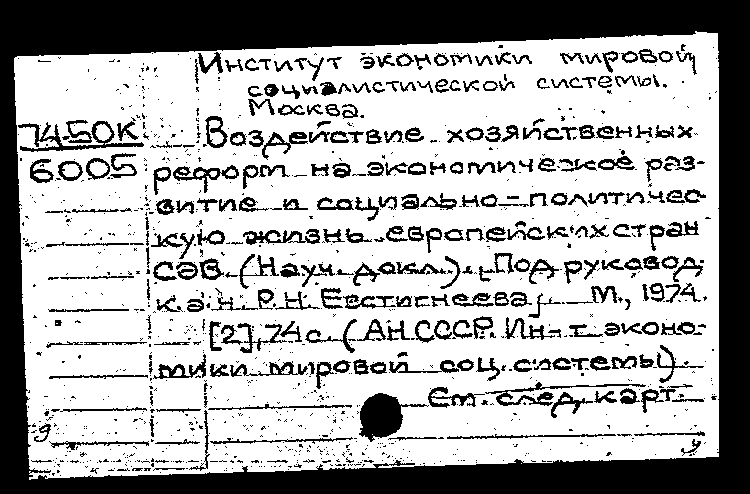 Институт экономики мировой
социалистической системы.
Москва.
7450к
6005
Воздействие хозяйственных
реформ на экономическое раз-
витие и социально-политичес-
кую жизнь европейских стран
СЭВ. (Науч. докл.). [Под руковод.
к.э.н. Р.Н. Евстигнеева]. М., 1974.
[2], 74 с. (АН СССР. Ин-т эконо-
мики мировой соц. системы).
См. след. карт.
д
у